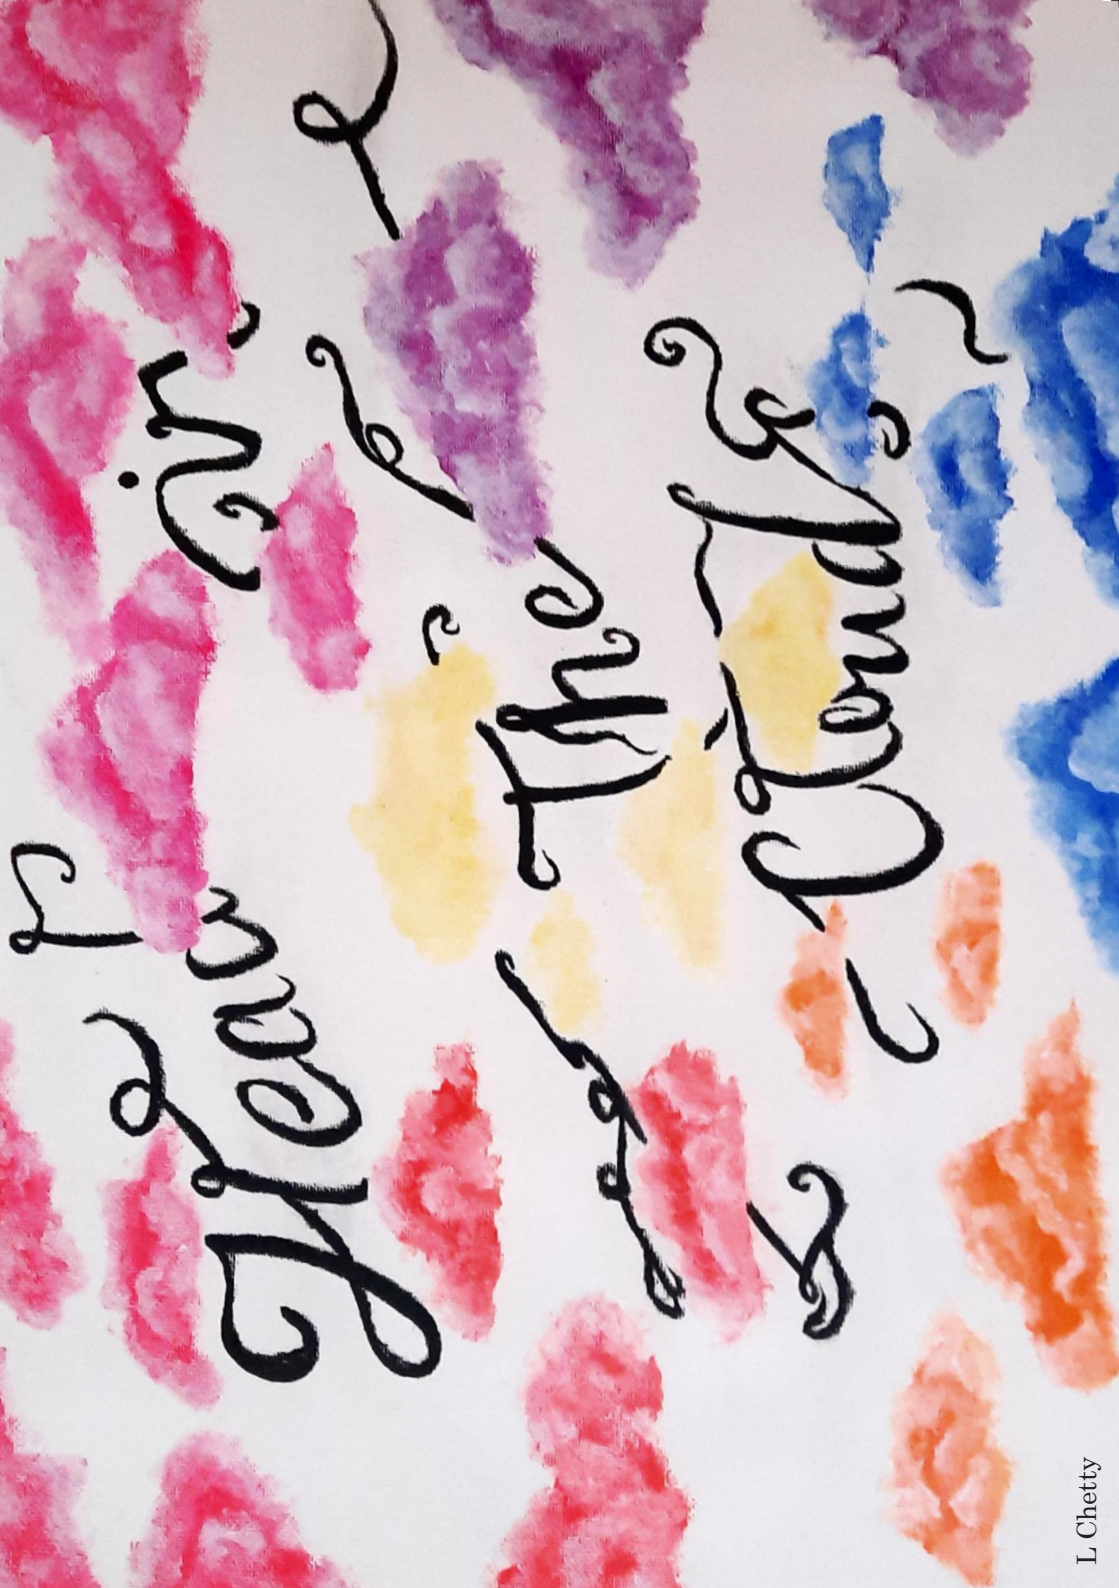 Head in
The
Clouds
L Chetty